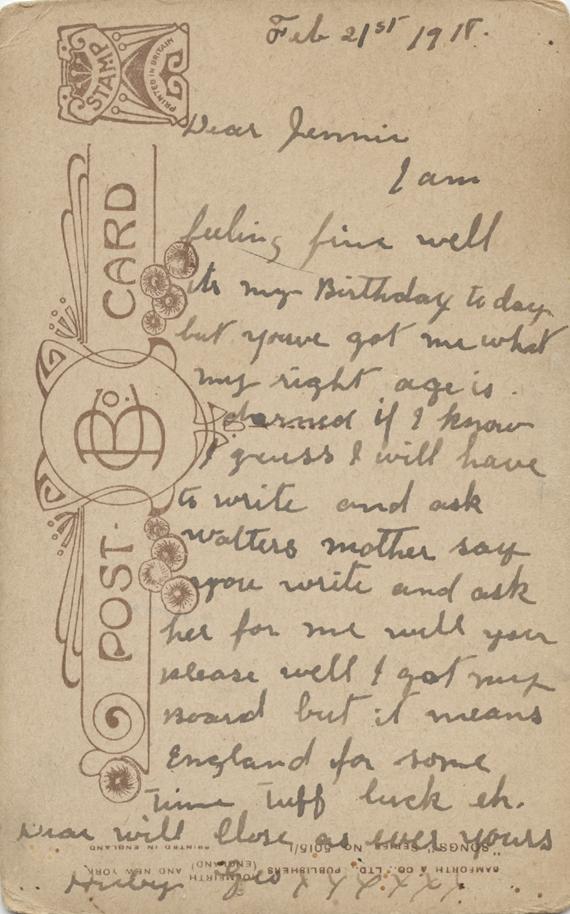 Feb 21st 1918.
STAMP
PRINTED IN BRITAIN
Dear Jennie
I am
feeling fine well
its my Birthday to day
but youve got me what
my right age is.
darned if I know
I guess I will have
to write and ask
Walters mother say
you write and ask
her for me will you
please well I got my
Board but it means
England for some
time tuff luck eh.
Dear will Close as ever yours
Huby Geo X X X X X X X
POST CARD
B & Co.
BAMFORTH & CO., LTD., PUBLISHERS, HOLMFIRTH (ENGLAND) AND NEW YORK
"SONGS" SERIES NO. 5015/1 PRINTED IN ENGLAND